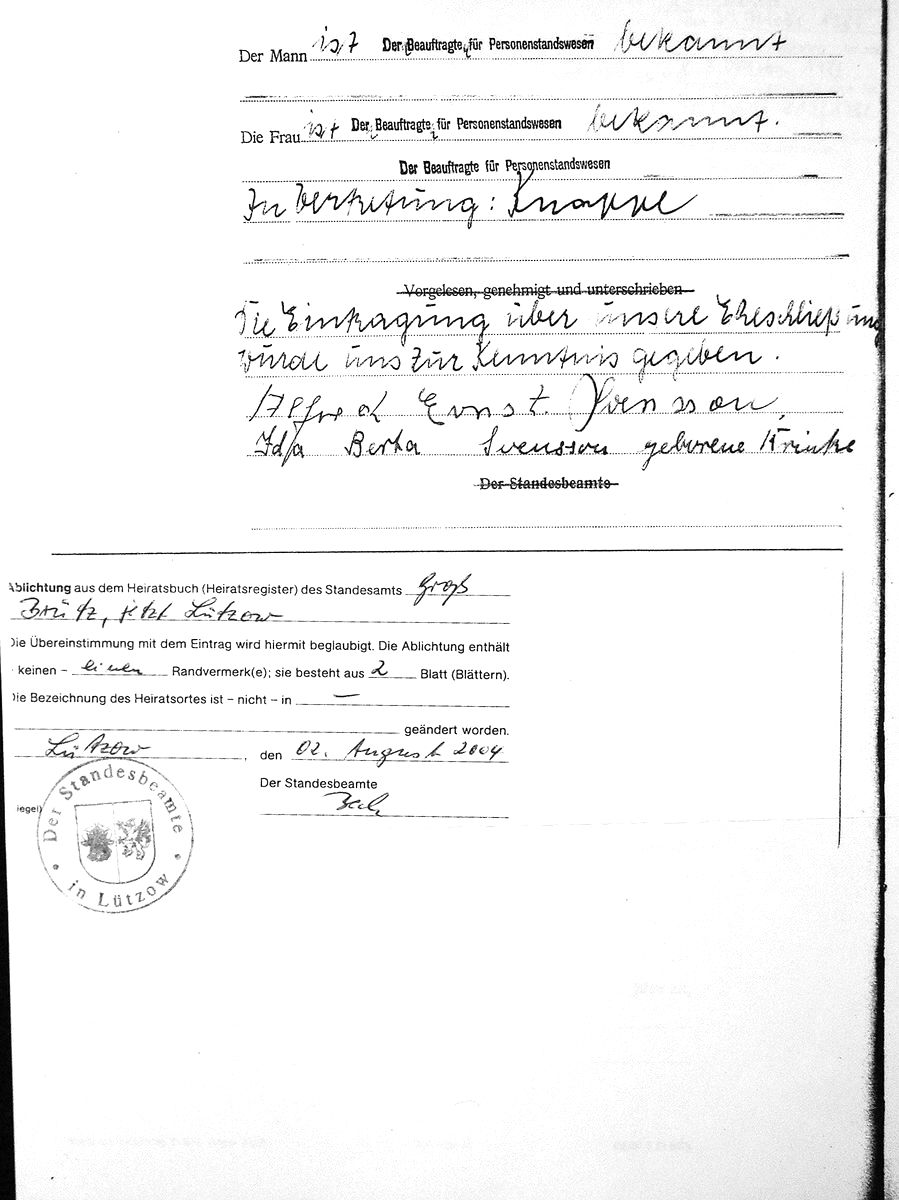 Der Mann ist Der Beauftragte für Personenstandswesen bekannt
Die Frau ist Der Beauftragte für Personenstandswesen bekannt.
Der Beauftragte für Personenstandswesen
In Vertretung: Knappe
Vorgelesen, genehmigt und unterschrieben
Die Eintragung über unsere Eheschließung
wurde uns zur Kenntnis gegeben.
Alfred Ernst Svensson,
Ida Berta Svensson geborene Krinke
Der Standesbeamte
Ablichtung aus dem Heiratsbuch (Heiratsregister) des Standesamts Groß
Brütz, jetzt Lützow
Die Übereinstimmung mit dem Eintrag wird hiermit beglaubigt. Die Ablichtung enthält
keinen – einen Randvermerk(e); sie besteht aus 2 Blatt (Blättern).
Die Bezeichnung des Heiratsortes ist – nicht – in —
geändert worden.
Lützow, den 02. August 2004
Der Standesbeamte
iegel)
Der Standesbeamte
in Lützow